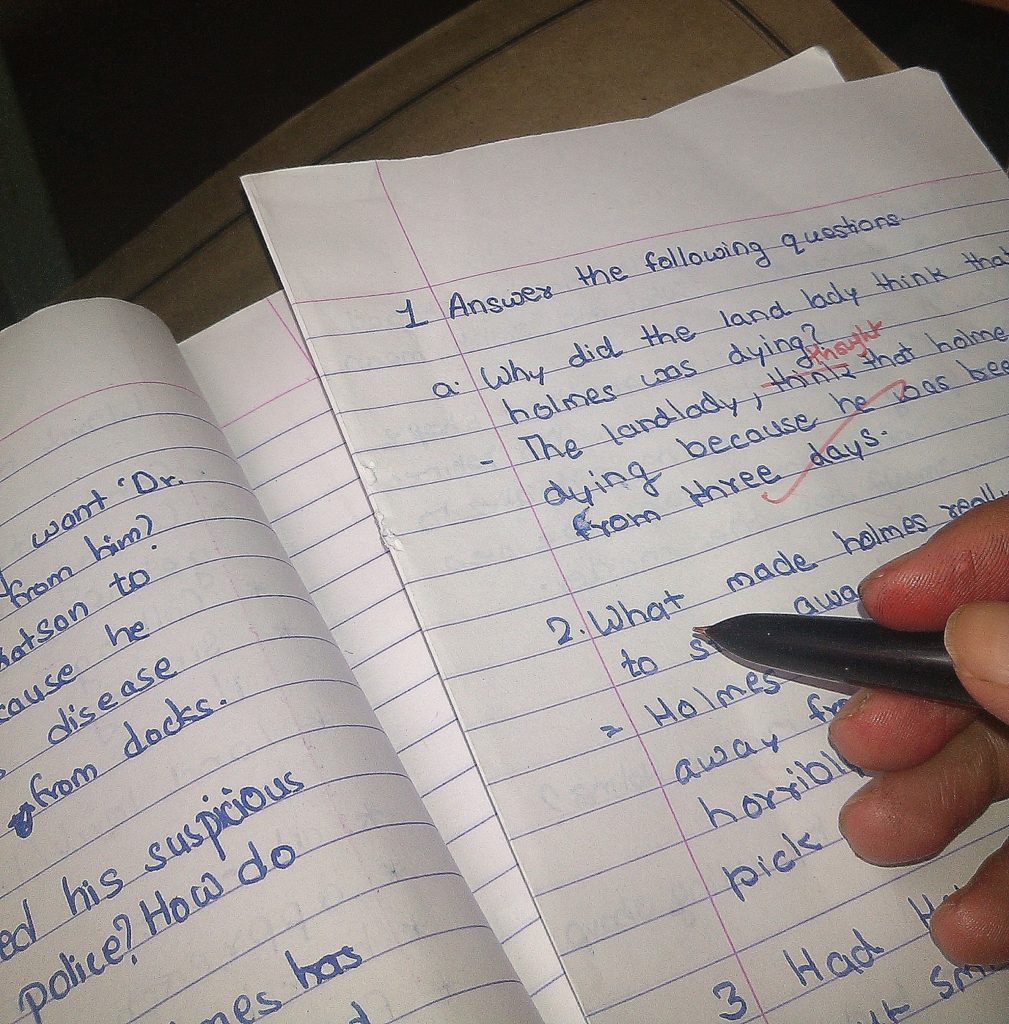 want 'Dr.
from him?
hatson to
cause he
disease
from docks.
ed his suspicious
police? How do
mes has
1 Answer the following questions.
a. Why did the land lady think that
holmes was dying?
thought
- The landlady, think that holme
dying because he was bee
from three days.
2. What made holmes really
to s awa
= Holmes
away fr
horribl
pick
3 Had H